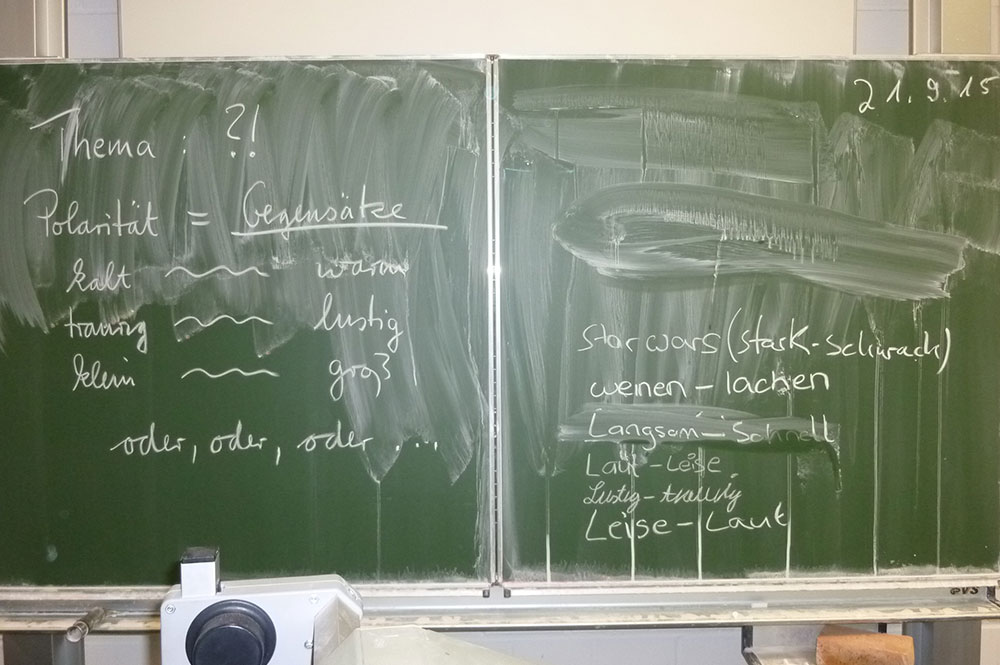 Thema : ?!
Polarität = Gegensätze
kalt ~ warm
traurig ~ lustig
klein ~ groß
oder, oder, oder ...
21.9.15
star wars (stark-schwach)
weinen - lachen
Langsam - Schnell
Laut - Leise
Lustig - traurig
Leise - Laut